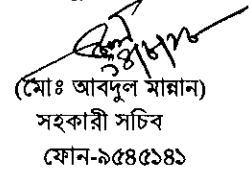 (মোঃ আবদুল মান্নান)
সহকারী সচিব
ফোন-৯৫৪৫১৪১